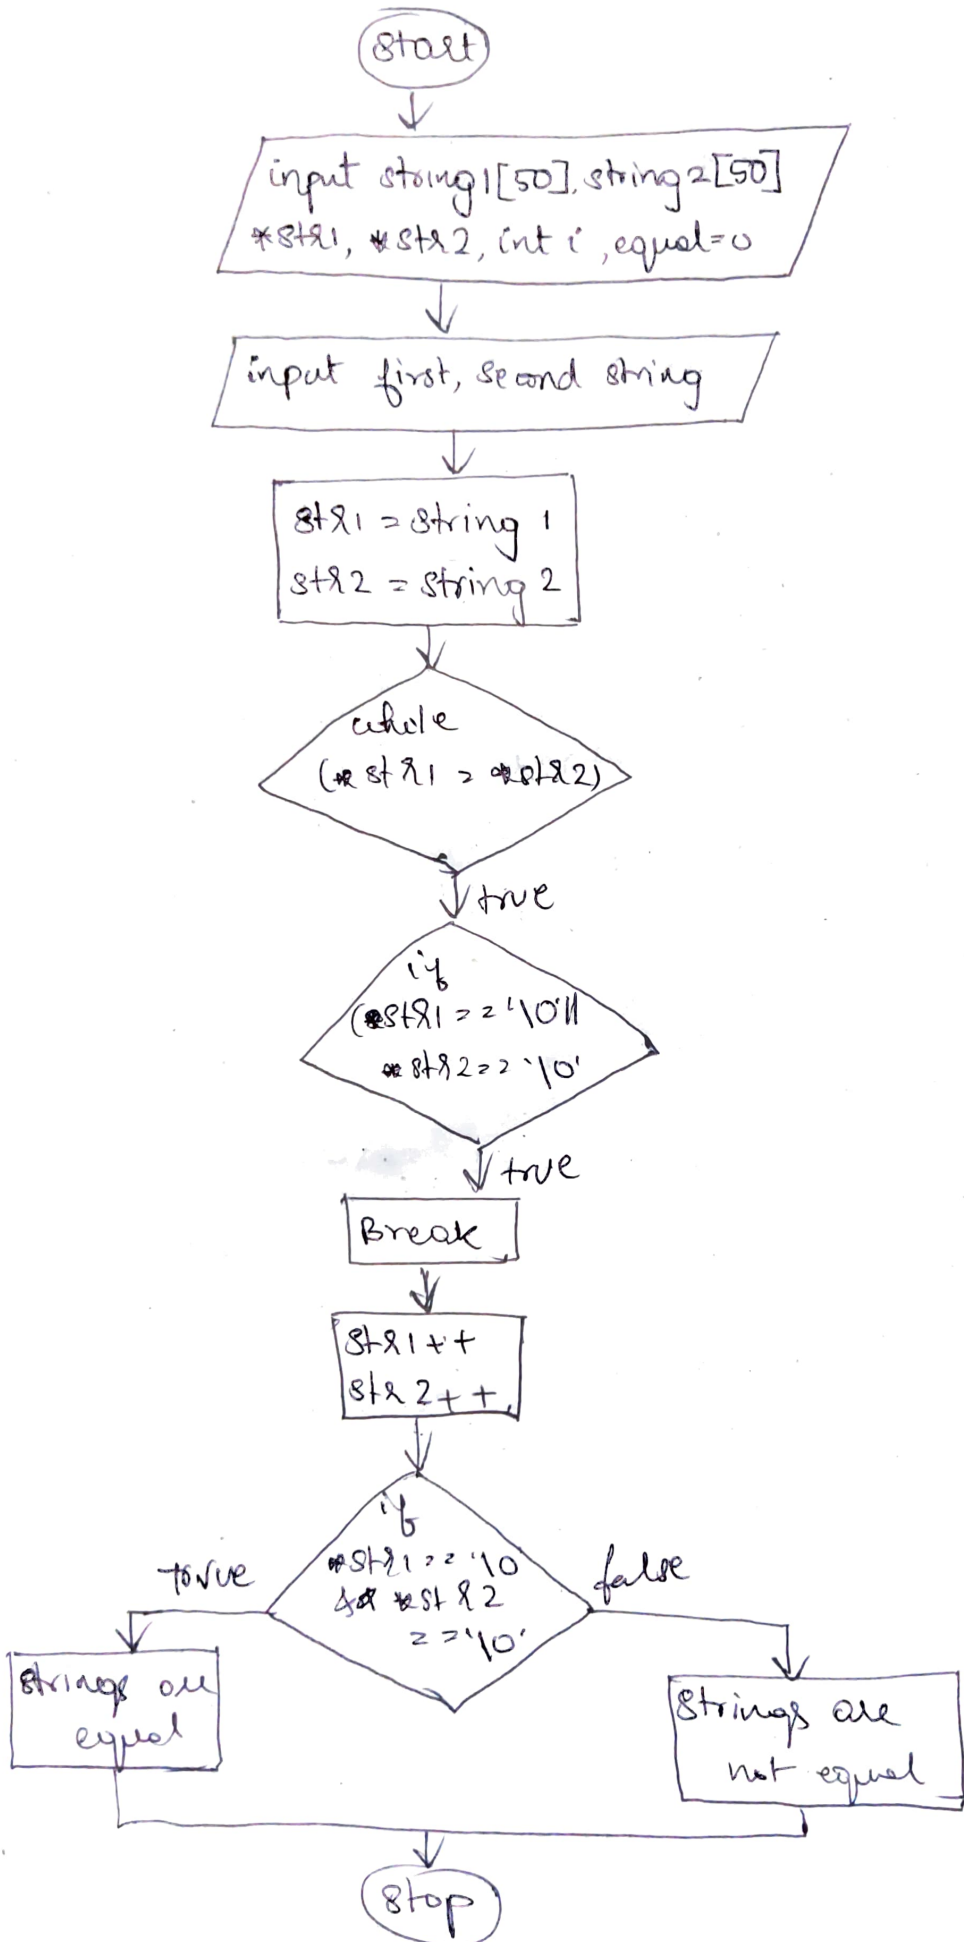 Start
input string1[50], string2[50]
*str1, *str2, int i, equal=0
input first, second string
str1 = string 1
str2 = string 2
while
(*str1 = *str2)
true
if
(*str1 == '\0' ||
*str2 == '\0'
true
Break
str1++
str2++
if
*str1 == '\0
&& *str2
== '\0'
true
false
strings are
equal
Strings are
not equal
Stop